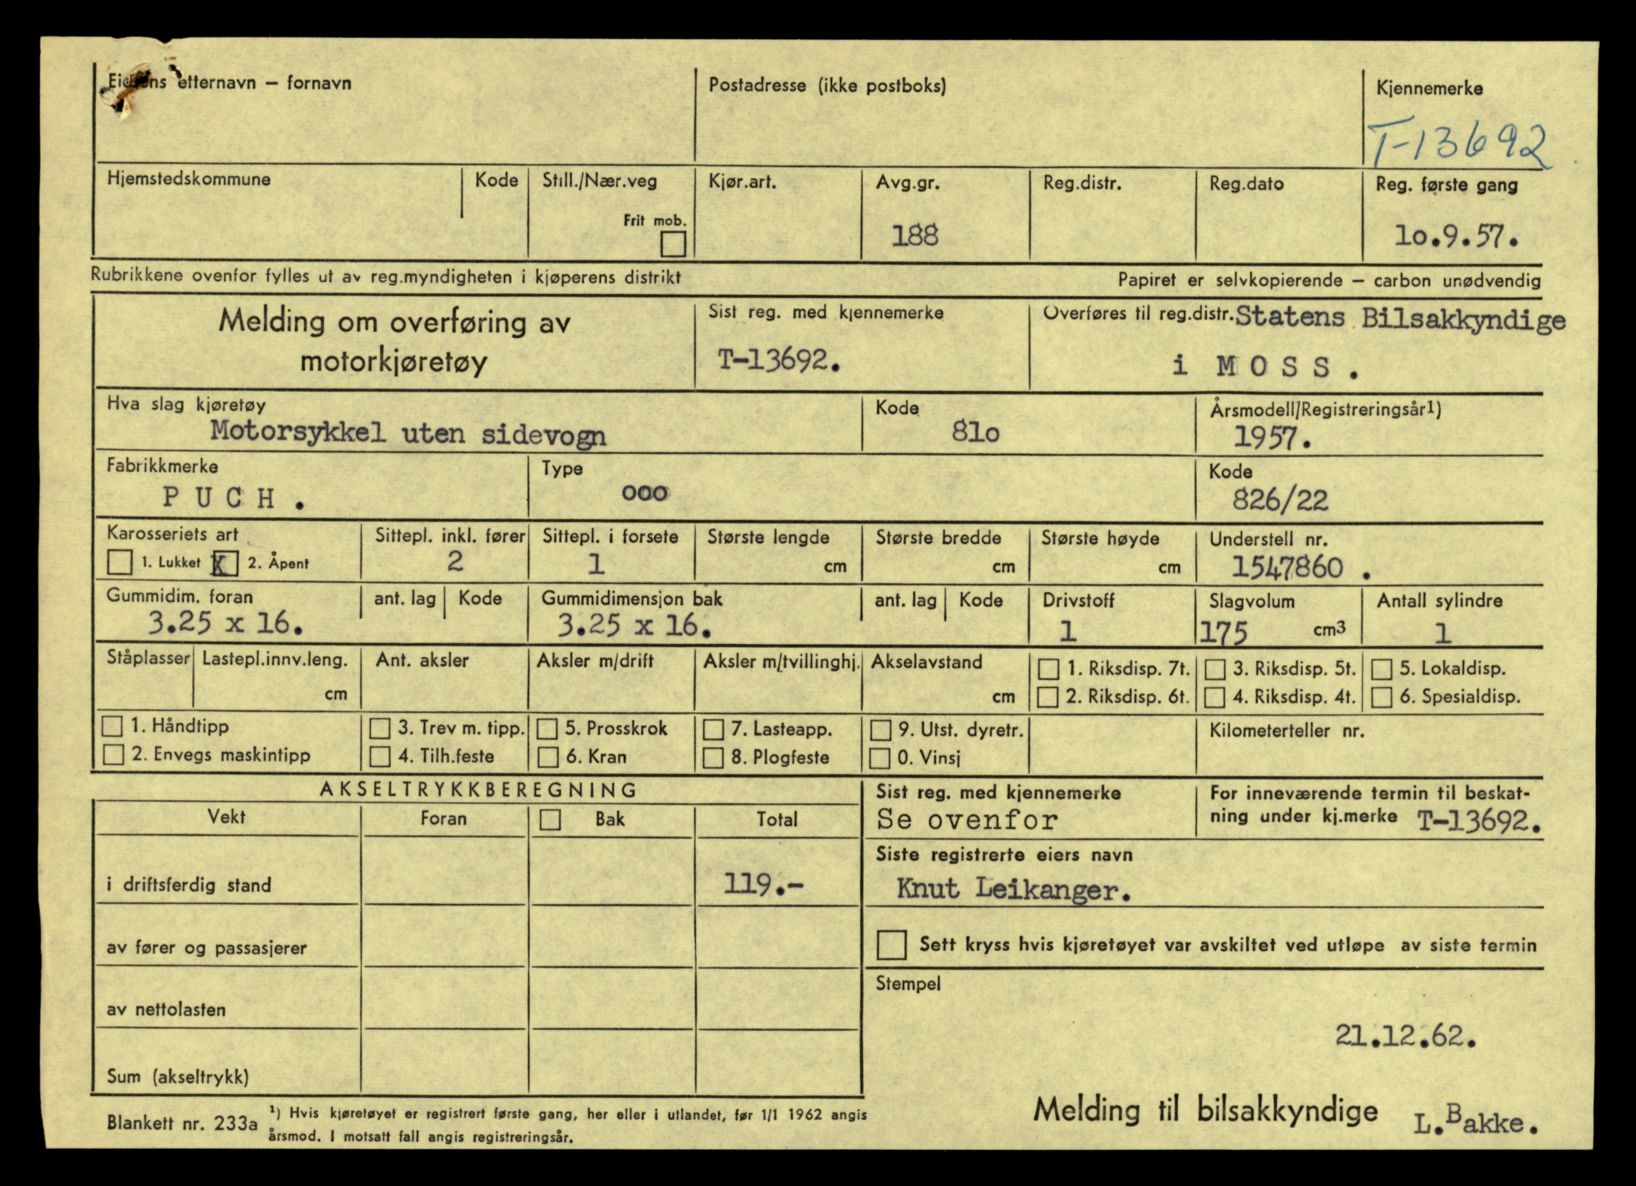 Eierens etternavn — fornavn
Postadresse (ikke postboks)
Kjennemerke
T-13692
Hjemstedskommune
Kode
Still./Nær.veg
Frit mob.
Kjør.art.
Avg.gr.
188
Reg.distr.
Reg.dato
Reg. første gang
1o.9.57.
Rubrikkene ovenfor fylles ut av reg.myndigheten i kjøperens distrikt
Papiret er selvkopierende — carbon unødvendig
Melding om overføring av
motorkjøretøy
Sist reg. med kjennemerke
T-13692.
Overføres til reg.distr. Statens Bilsakkyndige
i M O S S .
Hva slag kjøretøy
Motorsykkel uten sidevogn
Kode
81o
Årsmodell/Registreringsår1)
1957.
Fabrikkmerke
P U C H .
Type
ooo
Kode
826/22
Karosseriets art
1. Lukket X 2. Åpent
Sittepl. inkl. fører
2
Sittepl. i forsete
1
Største lengde
cm
Største bredde
cm
Største høyde
cm
Understell nr.
1547860 .
Gummidim. foran
3.25 x 16.
ant. lag
Kode
Gummidimensjon bak
3.25 x 16.
ant. lag
Kode
Drivstoff
1
Slagvolum
175 cm3
Antall sylindre
1
Ståplasser
Lastepl.innv.leng.
cm
Ant. aksler
Aksler m/drift
Aksler m/tvillinghj.
Akselavstand
cm
1. Riksdisp. 7t.
2. Riksdisp. 6t.
3. Riksdisp. 5t.
4. Riksdisp. 4t.
5. Lokaldisp.
6. Spesialdisp.
1. Håndtipp
2. Envegs maskintipp
3. Trev m. tipp.
4. Tilh.feste
5. Prosskrok
6. Kran
7. Lasteapp.
8. Plogfeste
9. Utst. dyretr.
0. Vinsj
Kilometerteller nr.
AKSELTRYKKBEREGNING
Vekt
Foran
Bak
Total
i driftsferdig stand
119.-
av fører og passasjerer
av nettolasten
Sum (akseltrykk)
Sist reg. med kjennemerke
Se ovenfor
For inneværende termin til beskat-
ning under kj.merke T-13692.
Siste registrerte eiers navn
Knut Leikanger.
Sett kryss hvis kjøretøyet var avskiltet ved utløpe av siste termin
Stempel
21.12.62.
Blankett nr. 233a
1) Hvis kjøretøyet er registrert første gang, her eller i utlandet, før 1/1 1962 angis
årsmod. I motsatt fall angis registreringsår.
Melding til bilsakkyndige
L.Bakke.